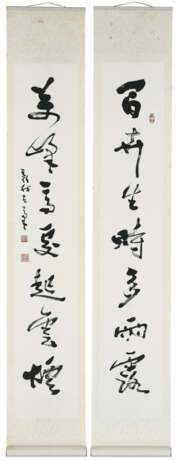 百卉生時多雨露
峰高處起雲煙